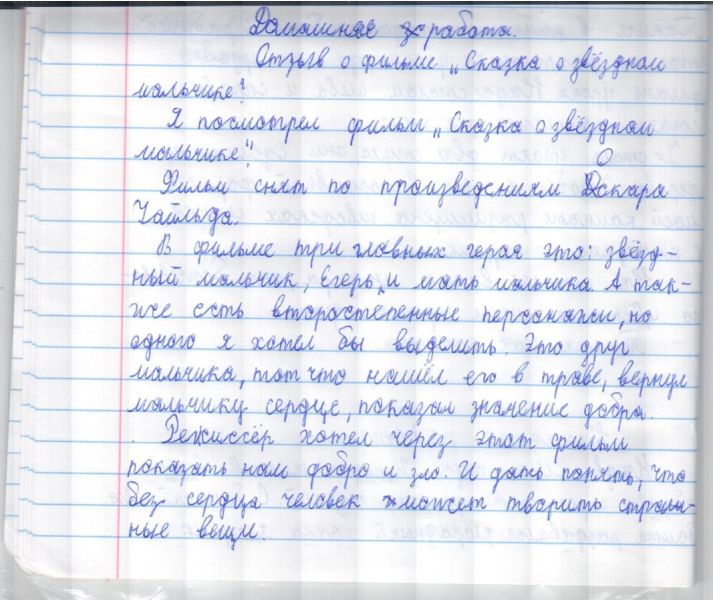 Домашнее работа.
Отзыв о фильме „Сказка о звёздном
мальчике".
Я посмотрел фильм „Сказка о звёздном
мальчике".
Фильм снят по произведениям Оскара
Уайльда.
В фильме три главных героя это: звёзд-
ный мальчик, Егерь, и мать мальчика. А так-
же есть второстепенные персонажи, но
одного я хотел бы выделить. Это друг
мальчика, тот что нашёл его в траве, вернул
мальчику сердце, показал значение добра.
Режиссёр хотел через этот фильм
показать нам добро и зло. И дать понять, что
без сердца человек может творить страш-
ные вещи.